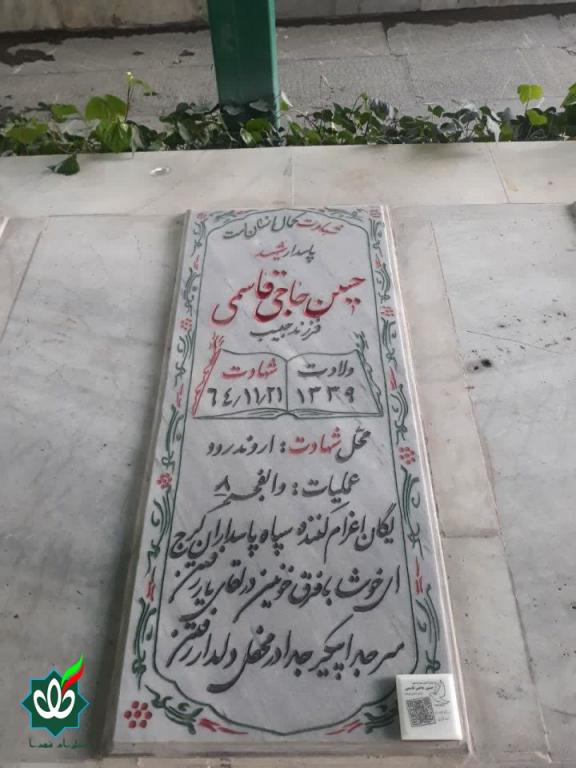 شهادت کمال انسان است
پاسدار شهید
حسین حاجی قاسمی
فرزند حبیب
ولادت شهادت
۱۳۳۹ ۶۴/۱۱/۲۱
محل شهادت: اروندرود
عملیات: والفجر ۸
یگان اعزام کننده سپاه پاسداران کرج
ای خوشا با فرق خونین در لقای یار رفتن
سر جدا پیکر جدا در محفل دلدار رفتن
حسین حاجی قاسمی